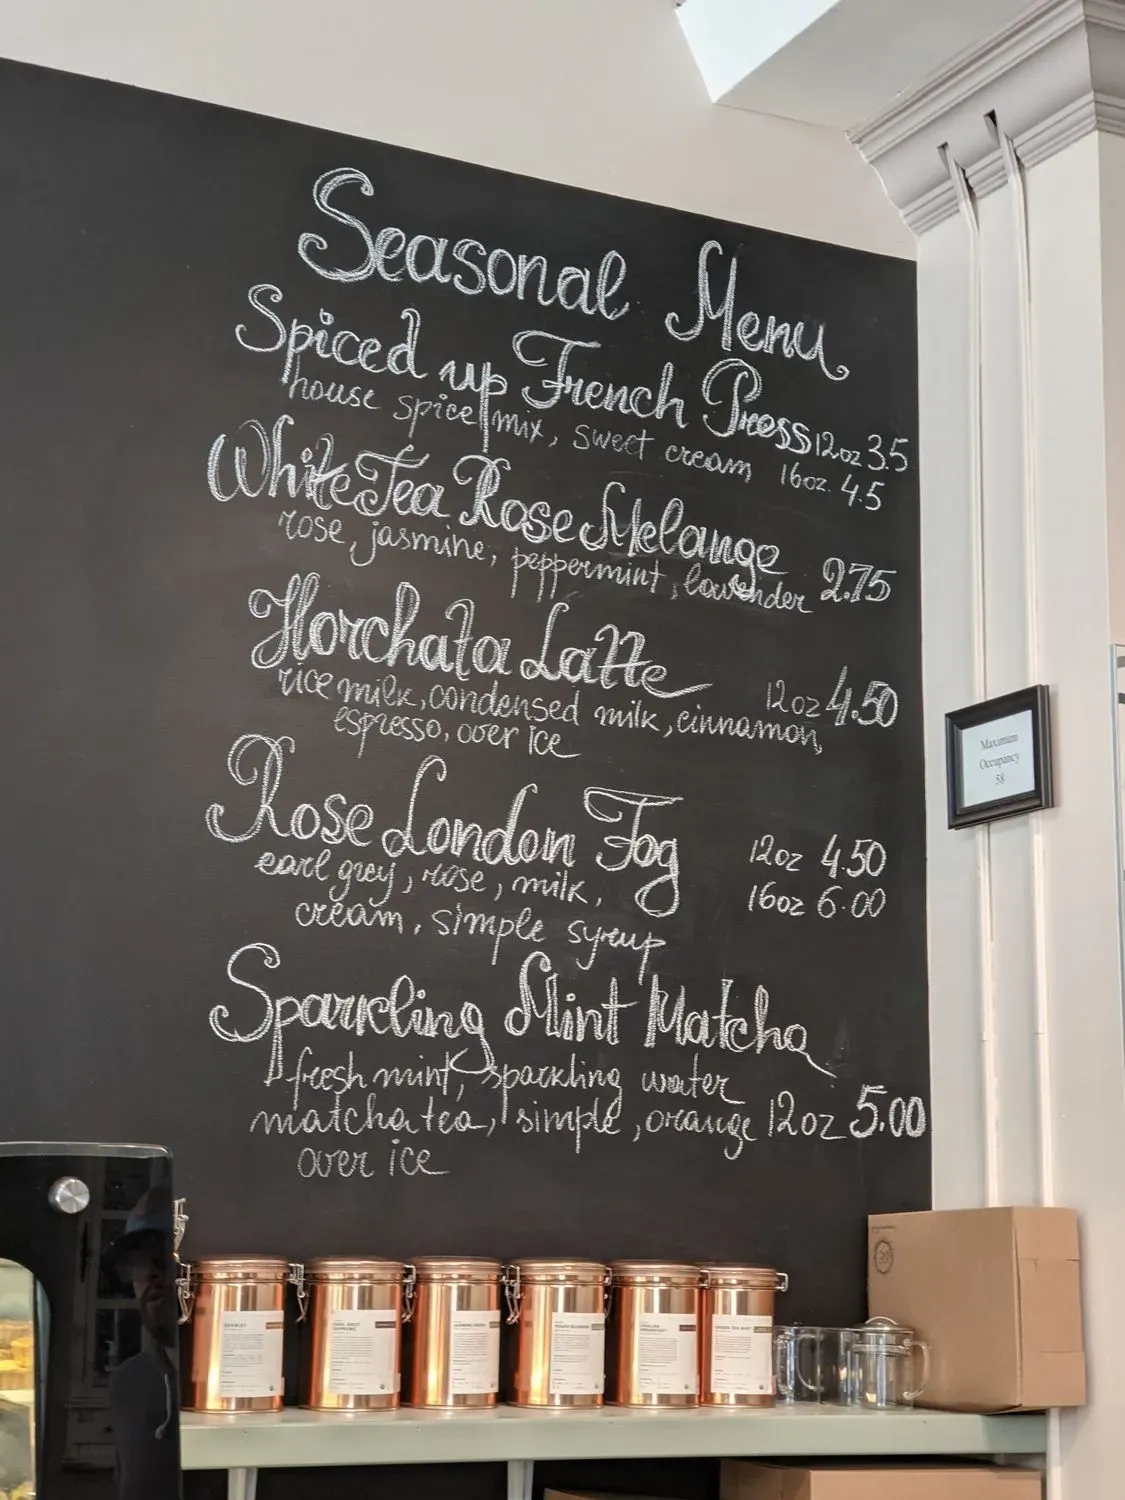 Seasonal Menu
Spiced up French Press 12oz 3.5
house spice mix, sweet cream 16oz. 4.5
White Tea Rose Melange
rose, jasmine, peppermint, lavender 2.75
Horchata Latte 12oz 4.50
rice milk, condensed milk, cinnamon,
espresso, over ice
Rose London Fog 12oz 4.50
earl grey, rose, milk, 16oz 6.00
cream, simple syrup
Sparkling Mint Matcha
fresh mint, sparkling water
matcha tea, simple, orange 12oz 5.00
over ice
Maximum
Occupancy
58
EARL GREY
SUPREME
JASMINE GREEN
ENGLISH
BREAKFAST
GREEN TEA MINT